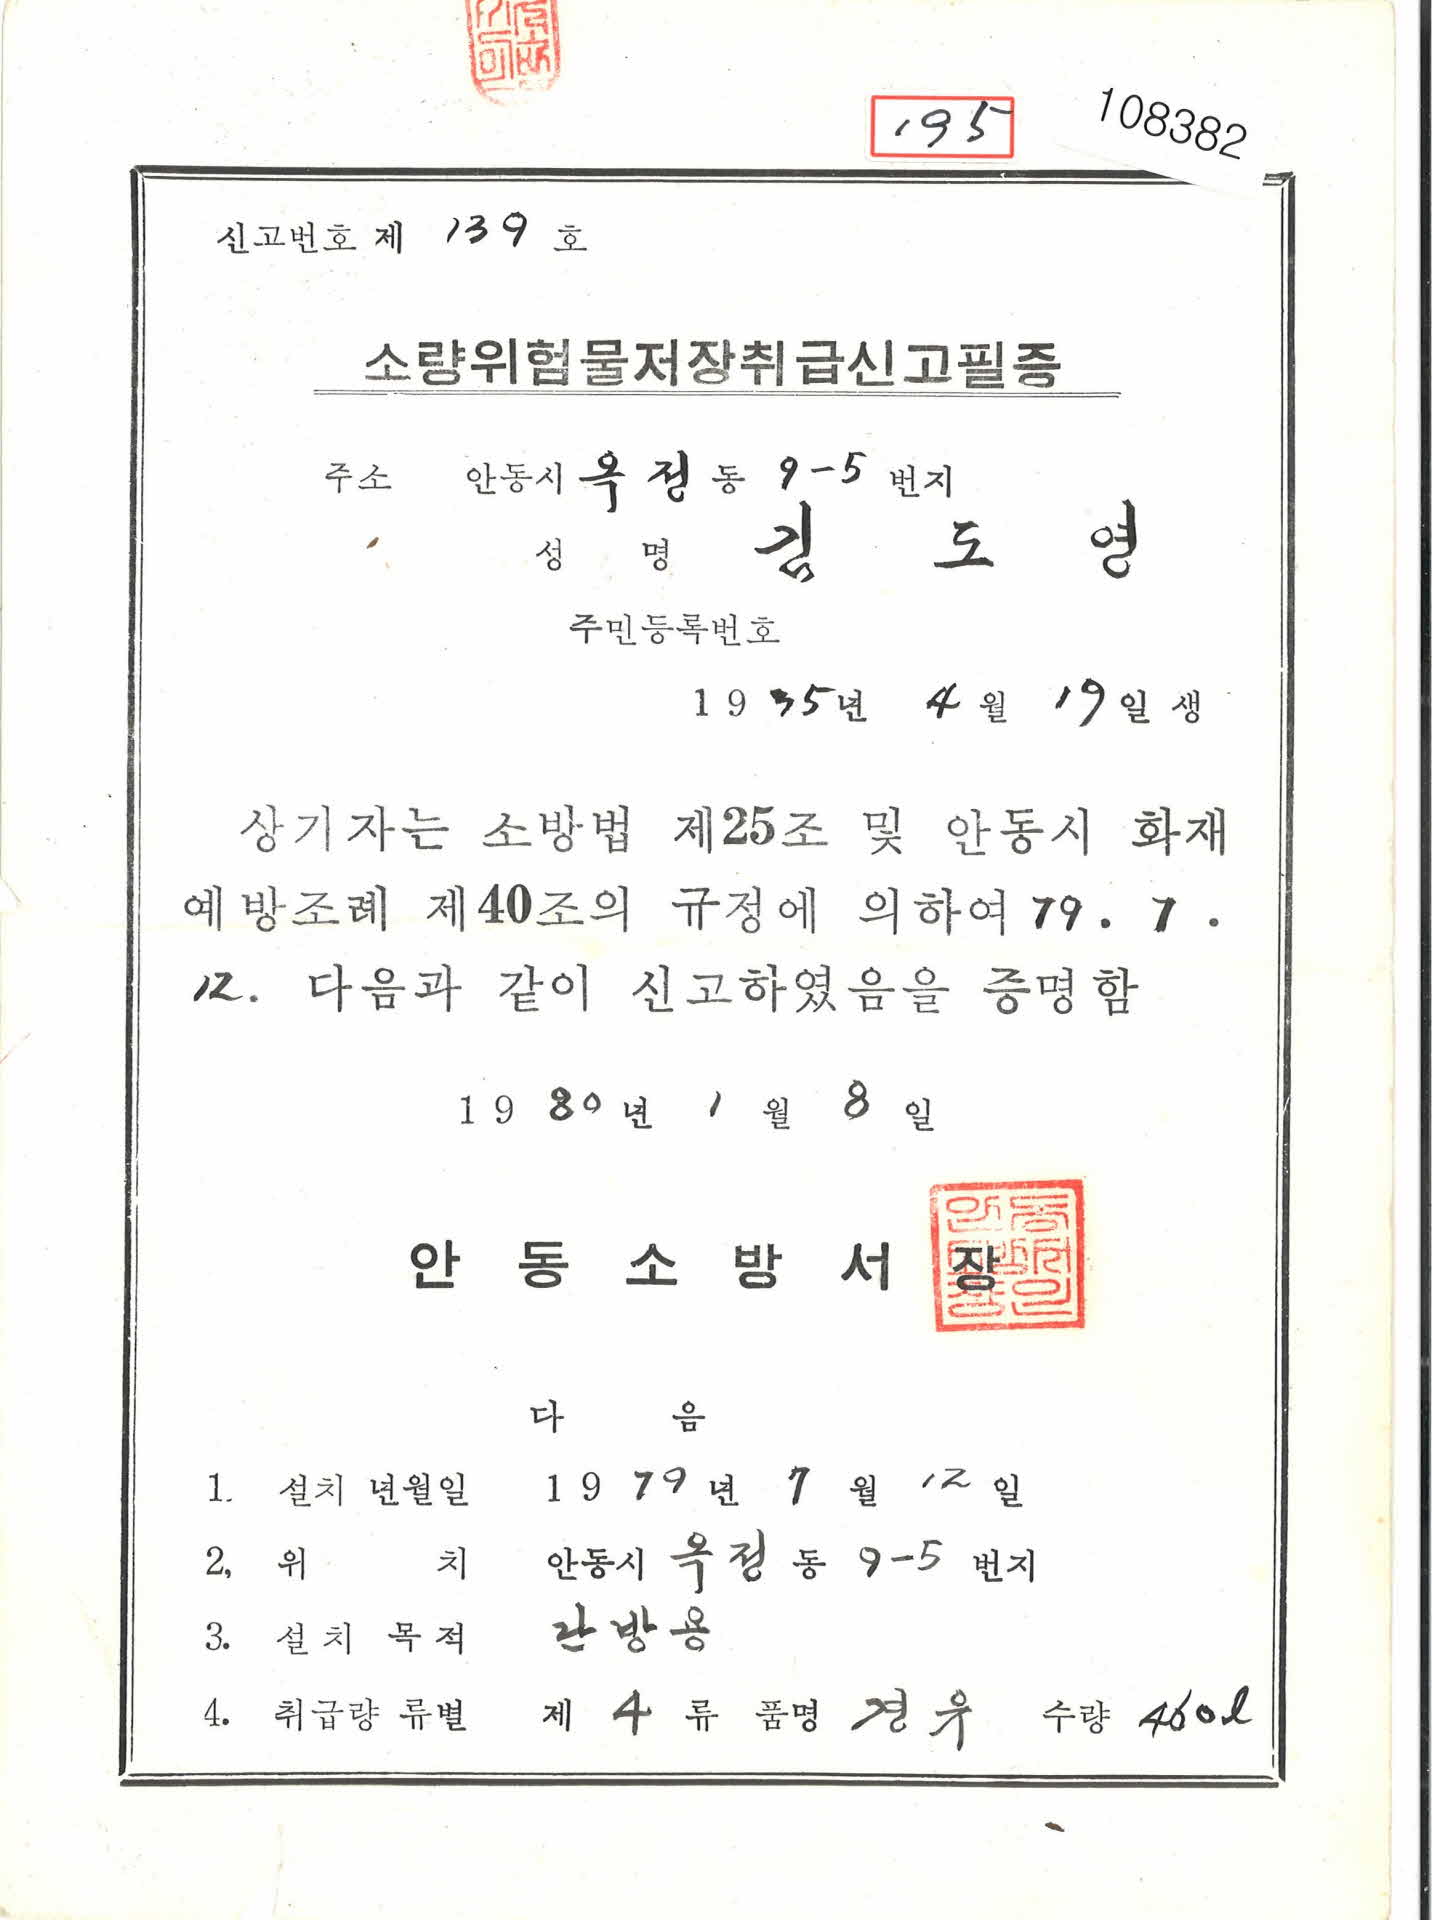 195
108382
신고번호 제 139 호
소량위험물저장취급신고필증
주소 안동시 옥정동 9-5 번지
성 명 김 도 연
주민등록번호
1935년 4월 19일생
상기자는 소방법 제25조 및 안동시 화재
예방조례 제40조의 규정에 의하여 79. 7.
12. 다음과 같이 신고하였음을 증명함
1980년 1월 8일
안동소방서장
다 음
1. 설치 년월일 1979년 7월 12일
2, 위 치 안동시 옥정동 9-5 번지
3. 설치 목적 난방용
4. 취급량 류별 제 4 류 품명 경유 수량 460ℓ